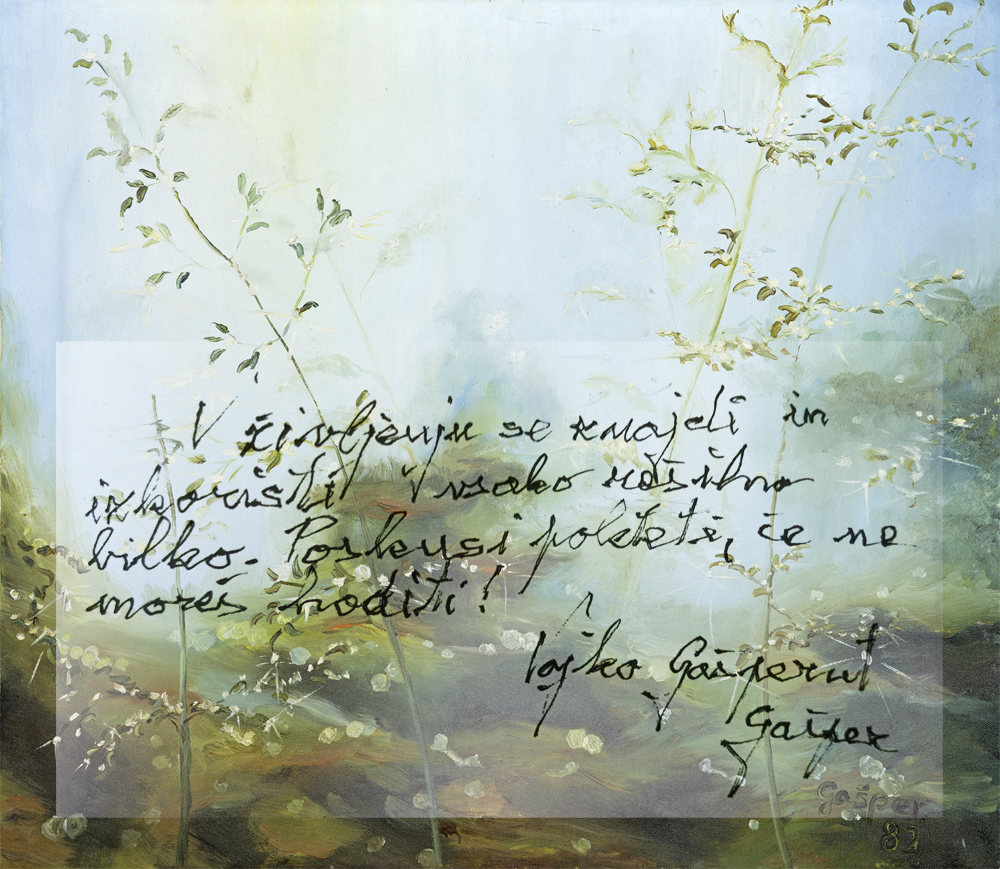 V življenju se znajdi in
izkoristi vsako rešilno
bilko. Poskusi poleteti, če ne
moreš hoditi!
Vojko Gašperut
Gašper
Gašper
82